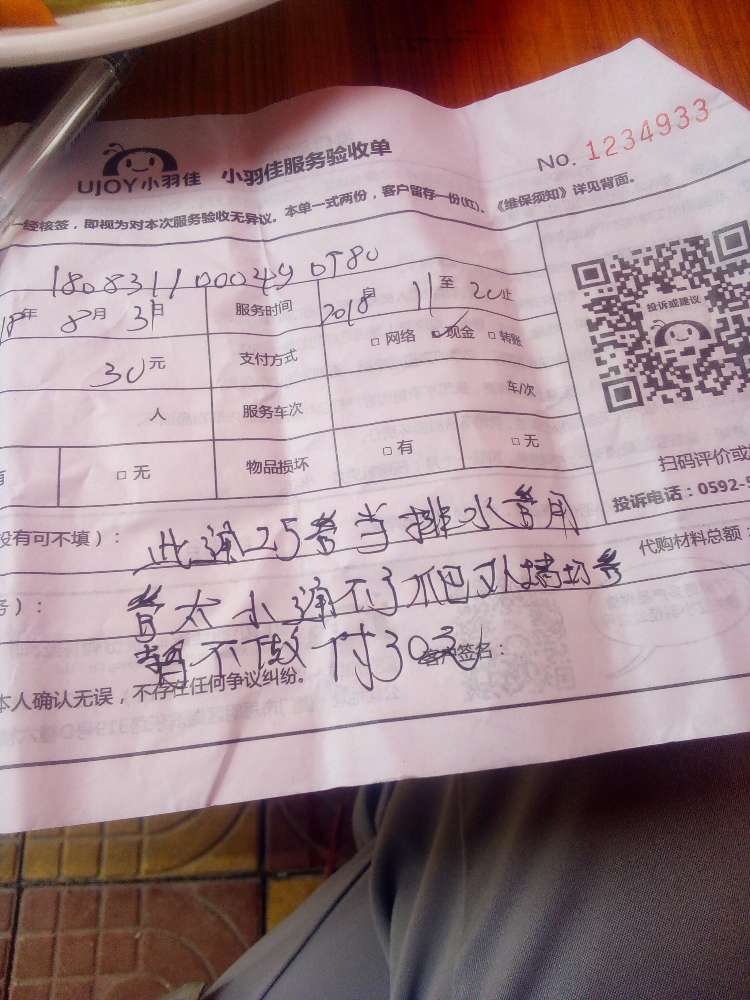 UJOY小羽佳 小羽佳服务验收单
No. 1234933
一经核签，即视为对本次服务验收无异议。本单一式两份，客户留存一份(红)。《维保须知》详见背面。
1808311000490T80
18年 8月 31日 服务时间 2018 自 11 至 20止
30元 支付方式 □ 网络 ☑ 现金 □ 转账
人 服务车次 车/次
□ 无 物品损坏 □ 有 □ 无
投诉或建议
扫码评价或
投诉电话：0592-5
没有可不填）： 此通25管当排水管用
代购材料总额：
务）： 管太小通不了 外墙切管
不做付30元
签名：
本人确认无误，不存在任何争议纠纷。